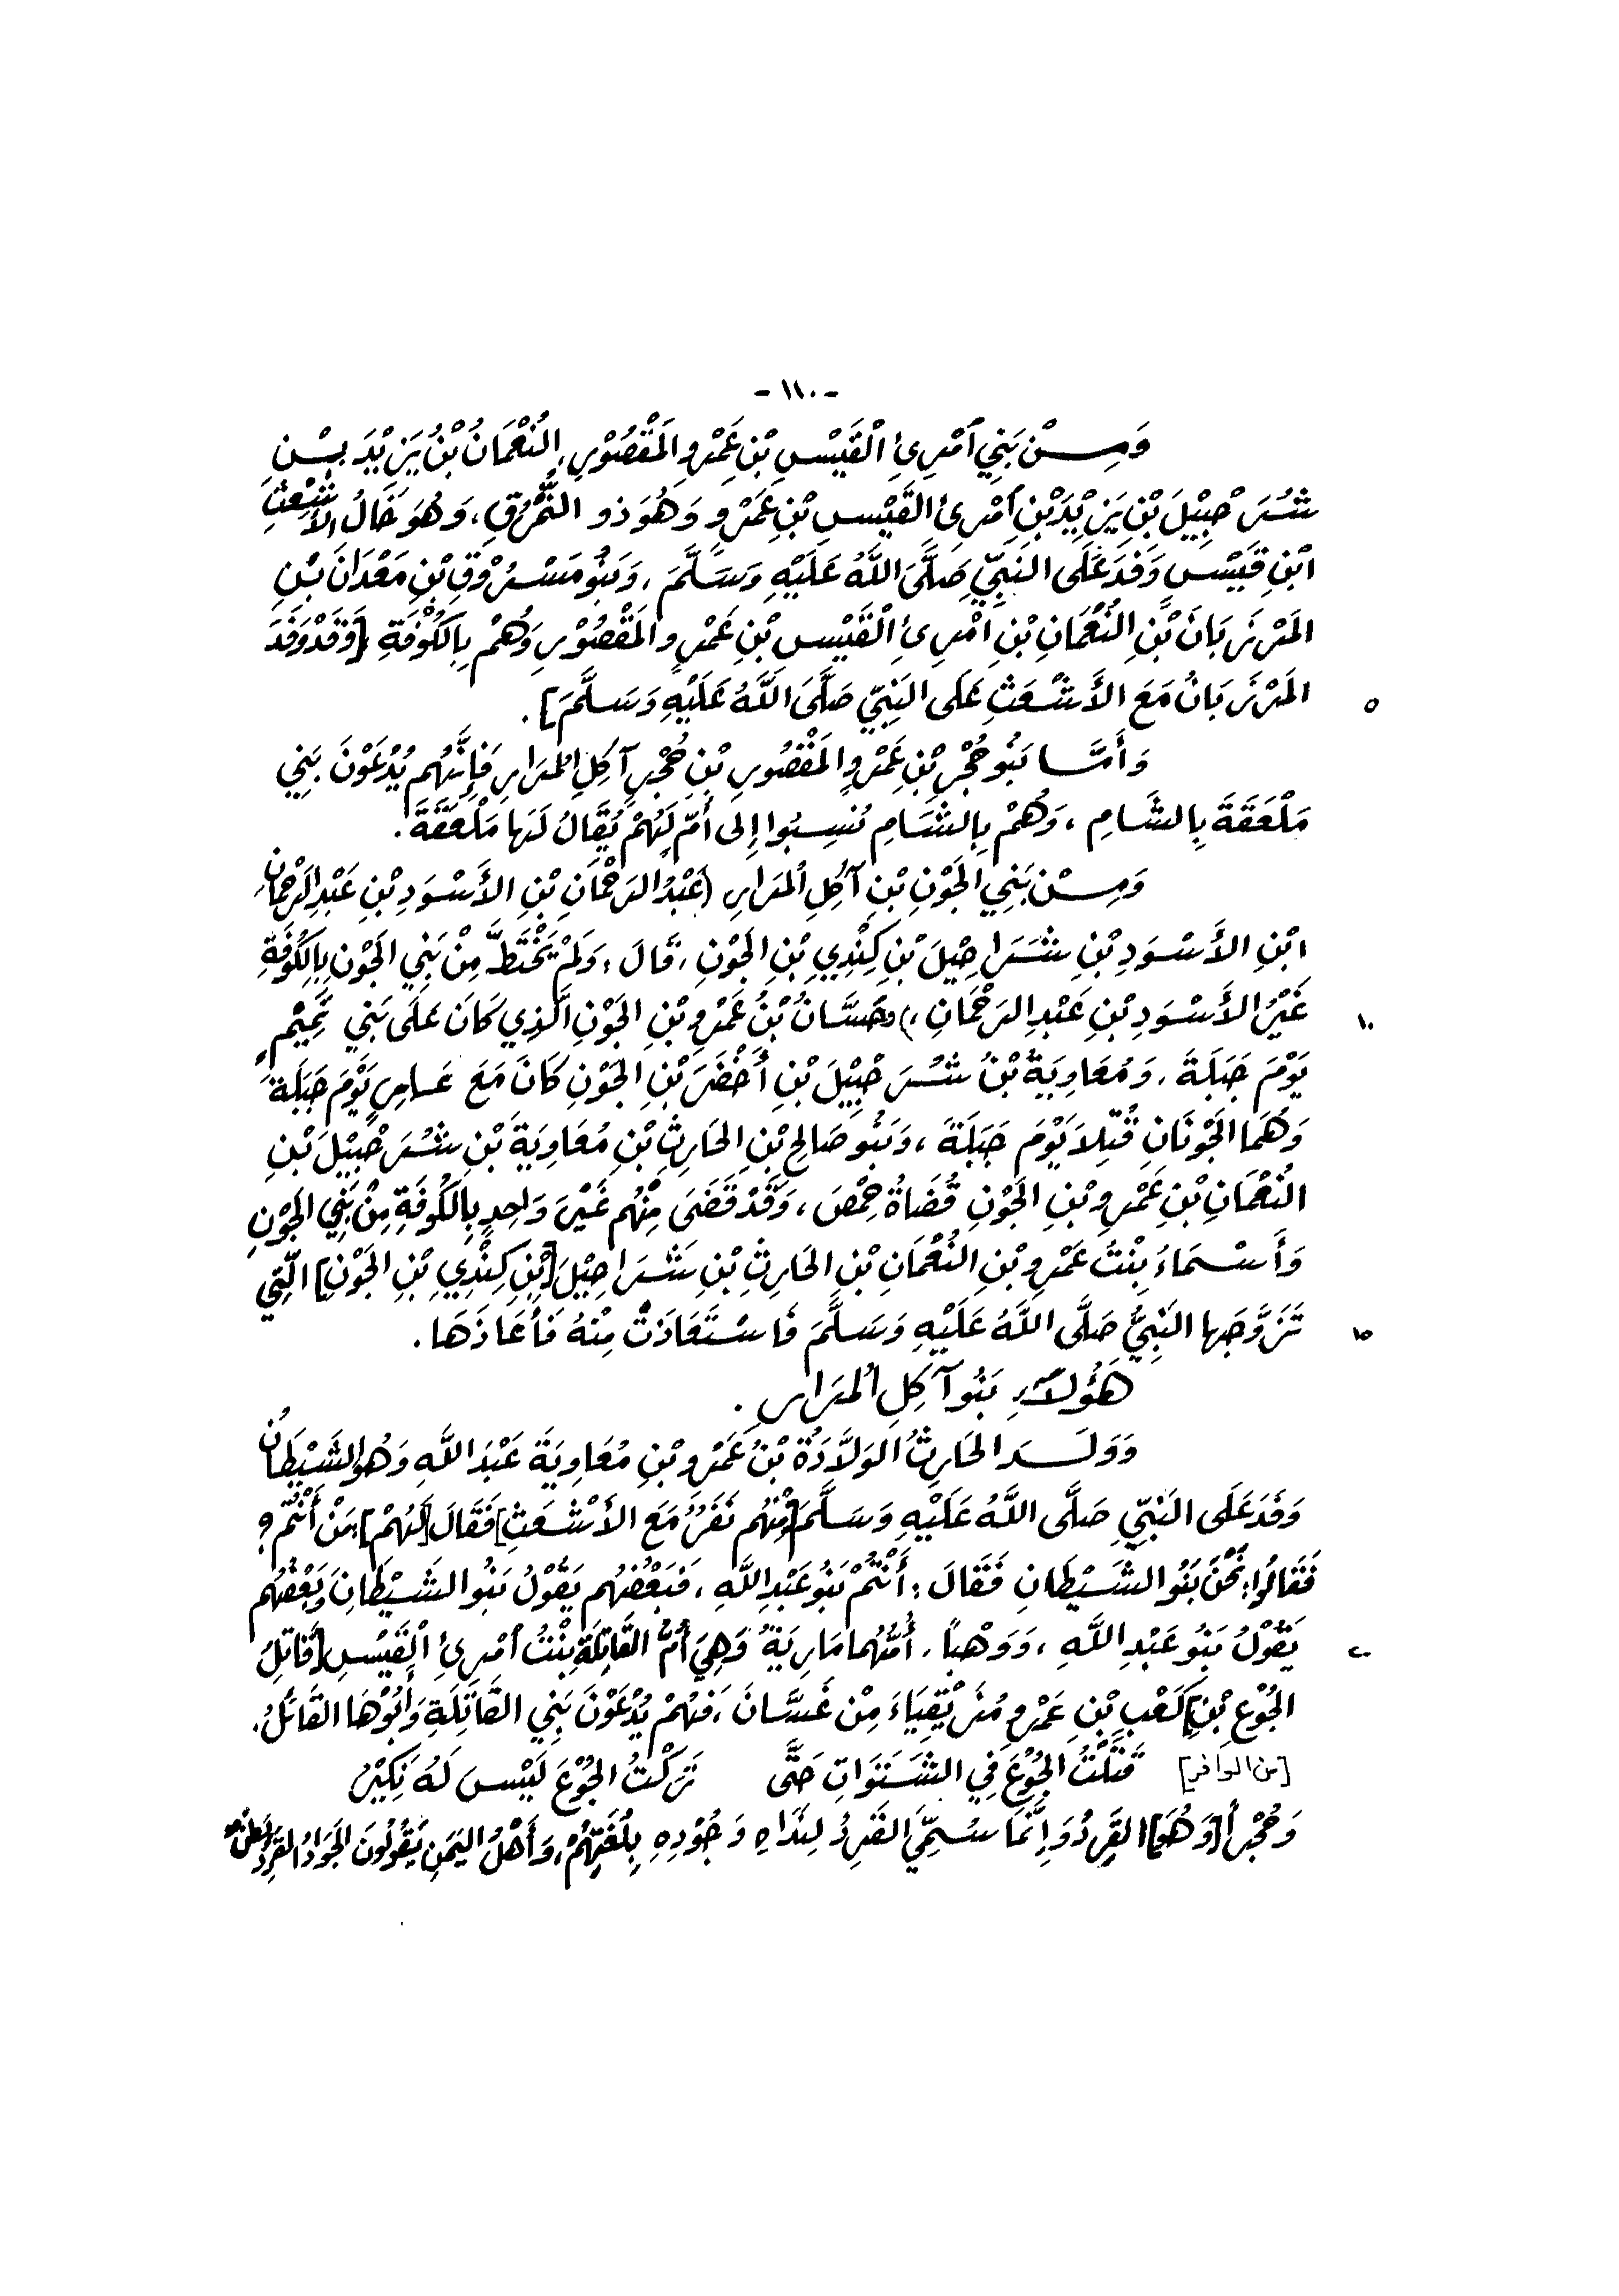 - ١١٠ -
وَمِــنْ بَنِي ٱمْرِئِ ٱلْقَيْسِ بْنِ عَمْرٍو المَقْصُوْرِ، النُعْمَانُ بْنُ يَزِيْدَ بــْنِ
شُرَحْبِيْلَ بْنِ يَزِيْدَ بْنِ ٱمْرِئِ القَيْسِ بْنِ عَمْرٍو وَهُوَ ذو النُّمْرُقِ، وَهُوَ خَالُ الأَشْعَثِ
ابْنِ قَيْسٍ وَفَدَ عَلَى النَبِيِّ صَلَّىَ اللَّهُ عَلَيْهِ وَسَلَّمَ، وَبَنُو مَسْرُوْقِ بْنِ مَعْدَانَ بْنِ
المَرْزَبَانَ بْنِ النُعْمَانِ بْنِ امْرِئِ ٱلْقَيْسِ بْنِ عَمْرٍو المَقْصُوْرِ وَهُمْ بِالكُوْفَةِ [وَقَدْ وَفَدَ
المَرْزَبَانُ مَعَ الأَشْعَثِ عَلَى النَبِيِّ صَلَّىَ اللَّهُ عَلَيْهِ وَسَلَّمَ].
٥
وَأَمَّــا بَنُو حُجْرِ بْنِ عَمْرٍو المَقْصُورِ بْنِ حُجْرٍ آكِلِ المُرَارِ فَإِنَّهُم يُدْعَوْنَ بَنِي
مَلْعَقَةَ بِالشَّامِ، وَهُمْ بِالشَامِ نُسِبُوا إِلى أُمٍّ لَهُمْ يُقَالُ لَهَا مَلْعَقَةَ.
وَمِــنْ بَنِي الجَوْنِ بْنِ آكِلِ المُرَارِ (عَبْدُ الرَحْمَانِ بْنِ الأَسْوَدِ بْنِ عَبْدِ الرَحْمَانِ
ابْنِ الأَسْوَدِ بْنِ شَرَاحِيْلَ بْنِ كِنْدِيِ بْنِ الجَوْنِ، قَالَ، وَلَمْ يَخْتَطَّ مِنْ بَنِي الجَوْنِ بِالكُوفَةِ
غَيْرُ الأَسْوَدِ بْنِ عَبْدِ الرَحْمَانِ،) وحَسَّانُ بْنُ عَمْرِو بْنِ الجَوْنِ الَّذِي كَانَ عَلَى بَنِي تَمِيْمٍ
١٠
يَوْمَ جَبَلَةَ، وَمُعَاوِيَةُ بْنُ شُرَحْبِيْلَ بْنِ أَخْضَرَ بْنِ الجَوْنِ كَانَ مَعَ عَــامِرٍ يَوْمَ جَبَلَةَ
وَهُمَا الجَوْنَانِ قُتِلَا يَوْمَ جَبَلَةَ، وَبَنُو صَالِحِ بْنِ الحَارِثِ بْنِ مُعَاوِيَةَ بْنِ شُرَحْبِيْلَ بْنِ
النُعْمَانِ بْنِ عَمْرِو بْنِ الجَوْنِ قُضَاةُ حِمْصَ، وَقَدْ قَضَى مِنْهُم غَيْرَ وَاحِدٍ بِالكُوفَةِ مِنْ بَنِي الجَوْنِ
وَأَسْمَاءُ بِنْتُ عَمْرِو بْنِ النُعْمَانِ بْنِ الحَارِثِ بْنِ شَرَاحِيْلَ [بْنِ كِنْدِيِ بْنِ الجَوْنِ] الَّتِي
تَزَوَّجَهَا النَبِيُّ صَلَّى اللَّهُ عَلَيْهِ وَسَلَّمَ فَاسْتَعَاذَتْ مِنْهُ فَأَعَاذَهَا.
١٥
هَؤُلَاءِ بَنُو آكِلِ المُرَارِ.
وَوَلَــدَ الحَارِثُ الوَلَّادَةُ بْنُ عَمْرِو بْنِ مُعَاوِيَةَ عَبْدَ اللَّهِ وَهُوَ الشَيْطَانُ
وَفَدَ عَلَى النَبِيِّ صَلَّى اللَّهُ عَلَيْهِ وَسَلَّمَ [مِنْهُم نَفَرٌ مَعَ الأَشْعَثِ] فَقَالَ [لَهُمْ] مَنْ أَنْتُم؟
فَقَالُوا: نَحْنُ بَنُو الشَيْطَانِ فَقَالَ: أَنْتُمْ بَنُو عَبْدِ اللَّهِ، فَبَعْضُهُم يَقُوْلُ بَنُو الشَيْطَانِ وَبَعْضُهُم
يَقُوْلُ بَنُو عَبْدِ اللَّهِ، وَوَهْباً، أُمُّهُمَا مَارِيَةُ وَهِيَ أُمُّ القَاتِلَةِ بِنْتُ ٱمْرِئِ ٱلْقَيْسِ [قَاتِلِ
٢٠
الجُوْعِ بْنِ] كَعْبِ بْنِ عَمْرٍو مُزَيْقِيَاءَ مِنْ غَسَّانَ، فَهُمْ يُدْعَوْنَ بَنِي القَاتِلَةِ وَأَبُوْهَا القَائلُ.
[من الوافر] قَتَلْتُ الجُوْعَ فِي الشَتَوَاتِ حَتَّى تَرَكْتُ الجُوْعَ لَيْسَ لَهُ نَكِيْرُ
وَحُجْراً [وَهُوَ] القَرِدُ وَإِنَّمَا سُمِّيَ القَرِدُ لِنَدَاهِ وَجُوْدِهِ بِلُغَتِهُمْ، وَأَهْلُ اليَمَنِ يَقُولُونَ الجَوَادُ القَرِدُ